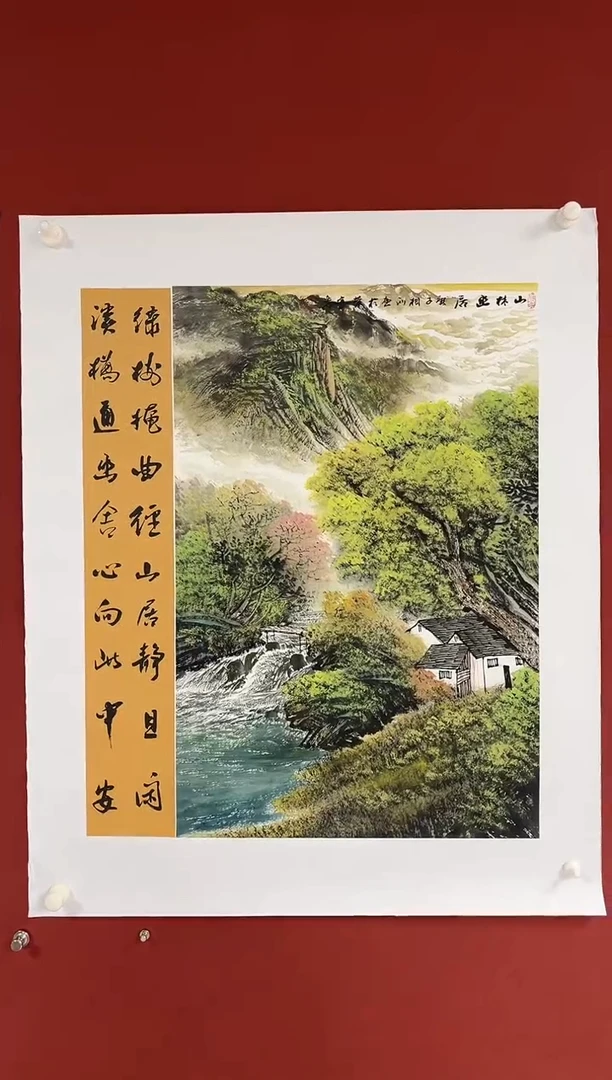 山林幽居
绿树掩曲径山居静且闲
溪桥通幽舍心向此中安